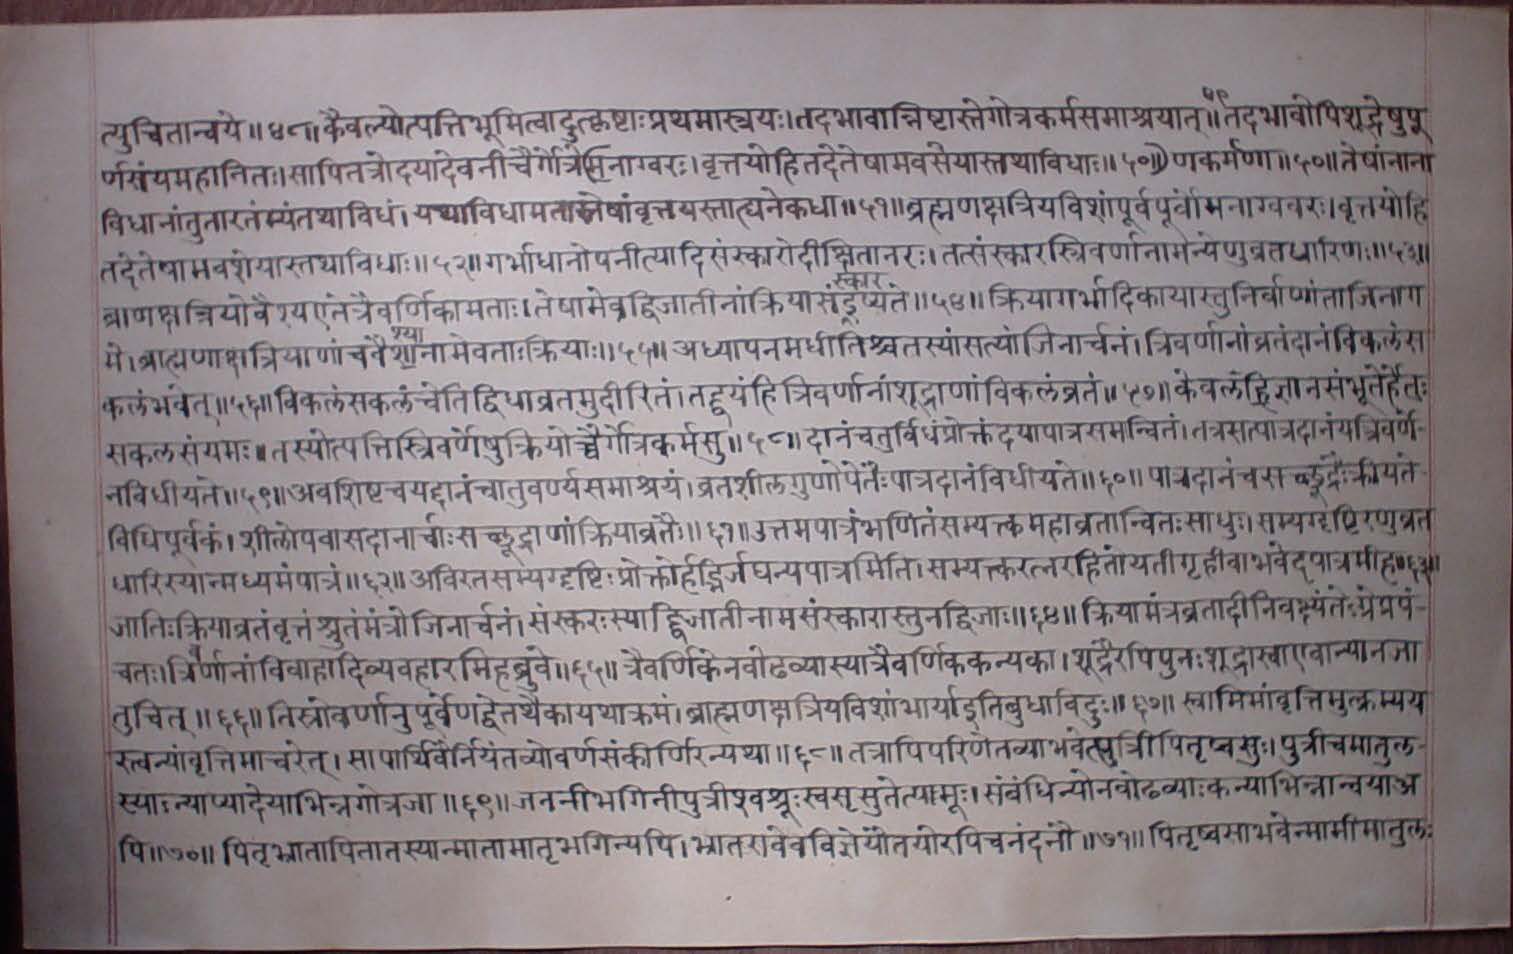 त्युचितान्वये॥४८॥कैवल्योत्पत्तिभूमित्वादुत्कृष्टाःप्रथमास्त्रयः।तदभावान्निष्टास्तेगोत्रकर्मसमाश्रयात्॥४९तदभावोपिशूद्रेषुपू
र्णसंयमहानितः।सापितत्रोदयादेवनीचैर्गोत्रस्मनाग्वरः।वृत्तयोहितदेतेषामवसेयास्तथाविधाः॥५०॥णकर्मणा॥५०॥तेषांनाना
विधानांतुतारतंम्यंतथाविधं।यथाविधामतास्तेषांवृत्तयस्तात्ध्यनेकधा॥५१॥ब्रह्मणक्षत्रियविशांपूर्वपूर्वोमनाग्ववरः।वृत्तयोहि
तदेतेषामवशेयास्तथाविधाः॥५२॥गर्भाधानोपनीत्यादिसंस्कारोदीक्षितानरः।तत्संस्कारस्त्रिवर्णानामन्येणुव्रतधारिणः॥५३॥
ब्राणक्षत्रियोवैश्यएतेत्रैवर्णिकामताः।तेषामेवद्विजातीनांक्रियासंस्कारइष्यते॥५४॥क्रियागर्भादिकायास्तुनिर्वाणांताजिनाग
मे।ब्राह्मणाक्षत्रियाणांचवैश्यानामेवताःक्रियाः॥५५॥अध्यापनमधीतिश्चतस्यांसत्यांजिनार्चनं।त्रिवर्णानांव्रतंदानंविकलंस
कलंभवेत्॥५६॥विकलंसकलंचेतिद्विधाव्रतमुदीरितं।तद्द्वयंहित्रिवर्णानांशूद्राणांविकलंव्रतं॥५७॥केवलंहिज्ञानसंभूतेर्हेतुः
सकलसंयमः॥तस्योत्पत्तिस्त्रिवर्णेषुक्रियोच्चैर्गोत्रकर्मसु॥५८॥दानंचतुर्विधंप्रोक्तंदयापात्रसमन्वितं।तत्रसत्पात्रदानंयत्रिवर्ण-
नविधीयते॥५९॥अवशिष्टचयद्दानंचातुवर्ण्यसमाश्रयं।व्रतशीलगुणोपेतैःपात्रदानंविधीयते॥६०॥पात्रदानंचसच्छूद्रैःक्रीयते
विधिपूर्वकं।शीलोपवासदानार्चाःसच्छूद्राणांक्रियाव्रतैः॥६१॥उत्तमपात्रंभणितंसम्यत्क्तमहाव्रतान्वितःसाधुः।सम्यग्दृष्टिरणुव्रत
धारिस्यान्मध्यमंपात्रं॥६२॥अविरतसम्यग्दृष्टिःप्रोक्तोर्हद्भिर्जघन्यपात्रमिति।सम्यत्क्तरत्नरहितोयतीगृहीवाभवेदपात्रमीह॥६३॥
जातिःक्रियाव्रतंवृत्तंश्रुतंमंत्रोजिनार्चनं।संस्करःस्याद्द्विजातीनामसंस्कारास्तुनद्विजाः॥६४॥क्रियामंत्रव्रतादीनिवक्ष्यंतेःग्रेप्रपं-
चतः।त्रिवर्णानांविवाहादिव्यवहारमिहब्रुवे॥६५॥त्रैवर्णिकेनवोढव्यास्यात्रैवर्णिककन्यका।शूद्रैरपिपुनःशूद्रास्वाएवान्यानजा
तुचित्॥६६॥तिस्रोवर्णानुपूर्वेणद्वेतथैकायथाक्रमं।ब्राह्मणक्षत्रियविशांभार्याइतिबुधाविदुः॥६७॥स्वामिमांवृत्तिमुत्क्रम्यय
स्त्वन्यांवृत्तिमाचरेत्।सापार्थिवैर्नियंतव्योवर्णसंकीर्णिरन्यथा॥६८॥तत्रापिपरिणेतव्याभवेत्पुत्रीपितृष्वसुः।पुत्रीचमातुल-
स्याःन्याप्यादेयाभिन्नगोत्रजा॥६९॥जननीभगिनीपुत्रीश्वश्रूःस्वसृसुतेत्यामूः।संबंधिन्योनवोढव्याःकन्याभिन्नान्वयाअ
पि॥७०॥पितृभ्रातापितातस्यान्मातामातृभगिन्यपि।भ्रातरावेवविज्ञेयौतयोरपिचनंदनौ॥७१॥पितृष्वसाभवेन्मामीमातुलः